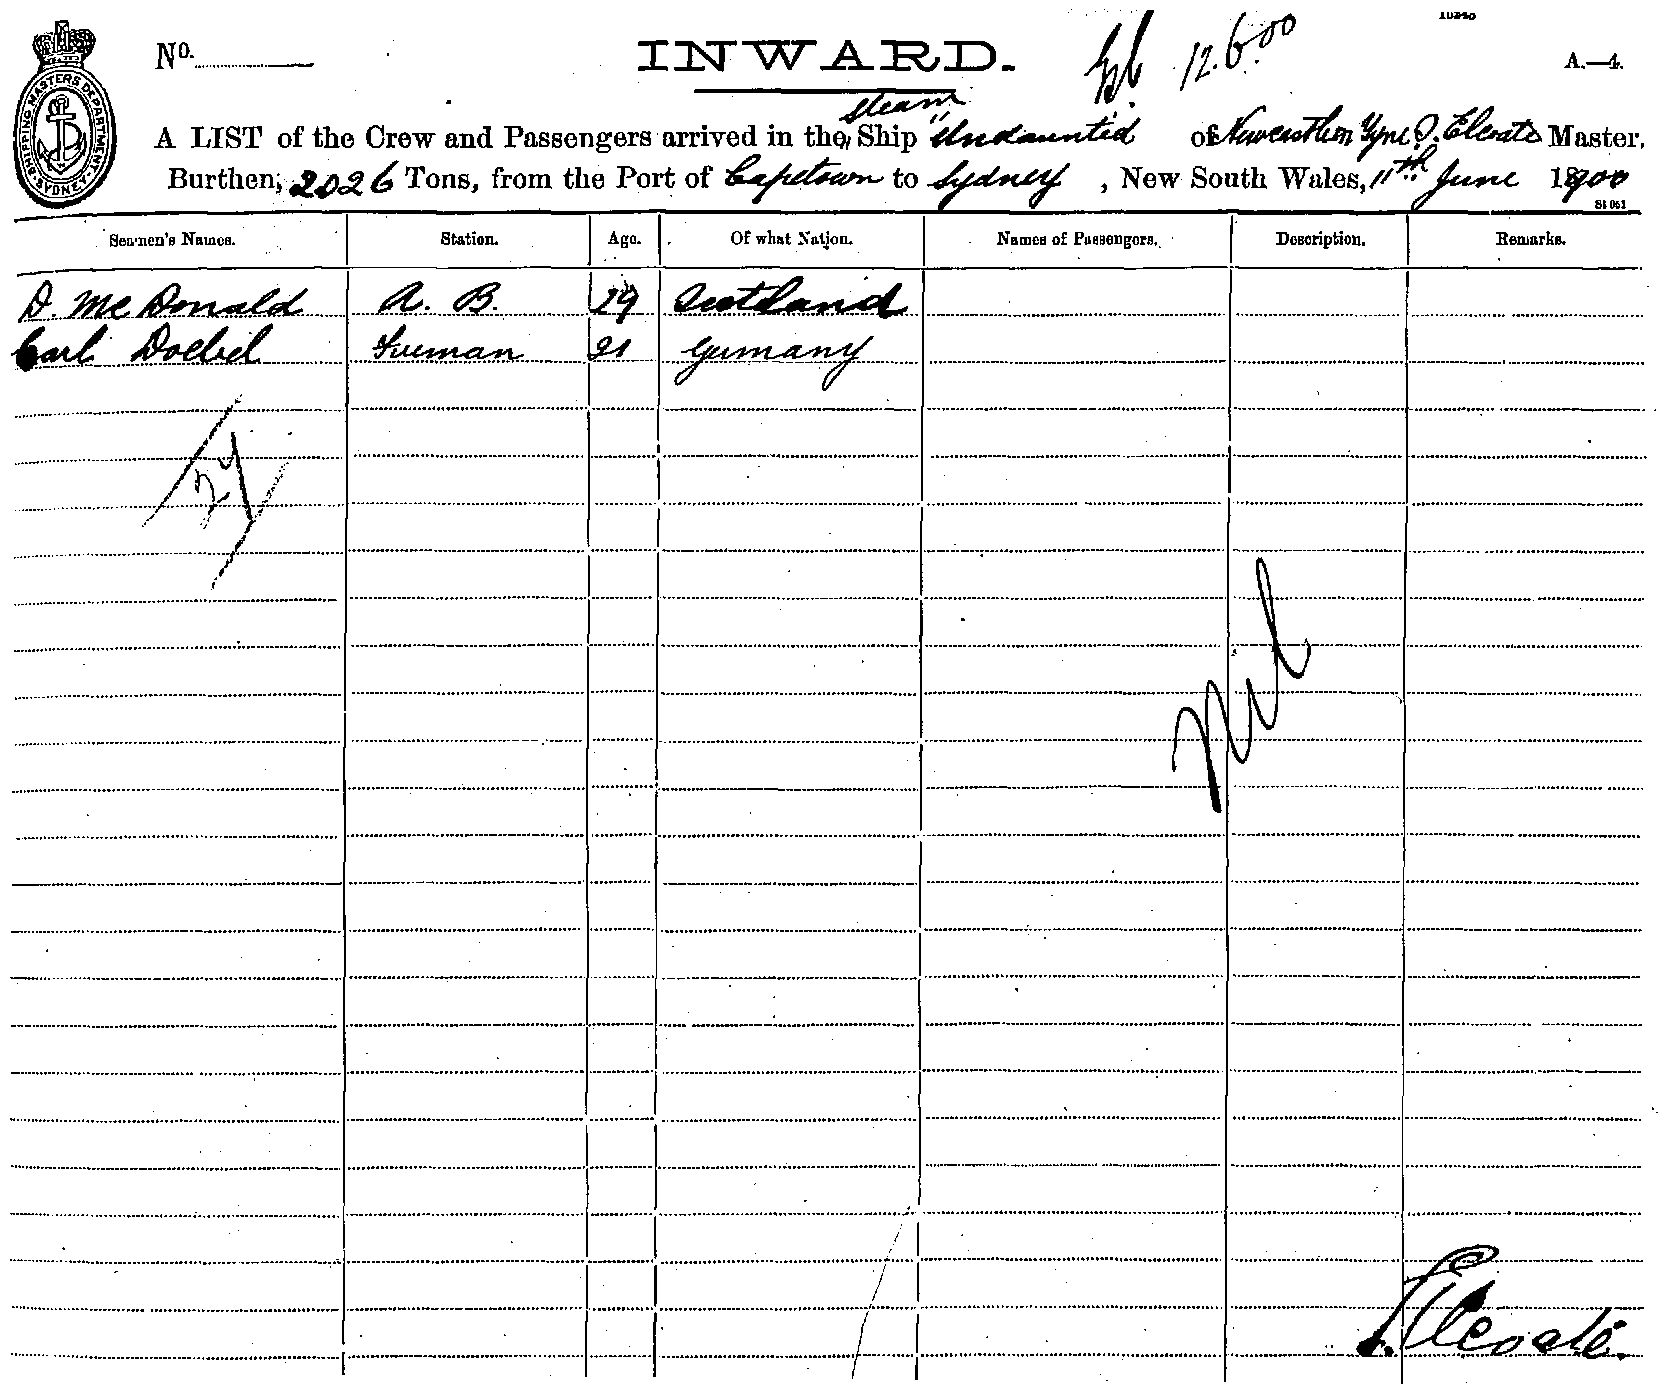 10240
No.
INWARD.
12.6.00
A.—4.
SHIPPING MASTERS DEPARTMENT. SYDNEY.
steam
A LIST of the Crew and Passengers arrived in the Ship "Undaunted of Newcastle on Tyne, Elcoate Master,
Burthen, 2026 Tons, from the Port of Capetown to Sydney, New South Wales, 11th June 1900
Seamen's Names. Station. Age. Of what Nation. Names of Passengers. Description. Remarks.
D. McDonald A. B. 29 Scotland
Carl Doebel Fireman 21 Germany
Nil
Elcoate.